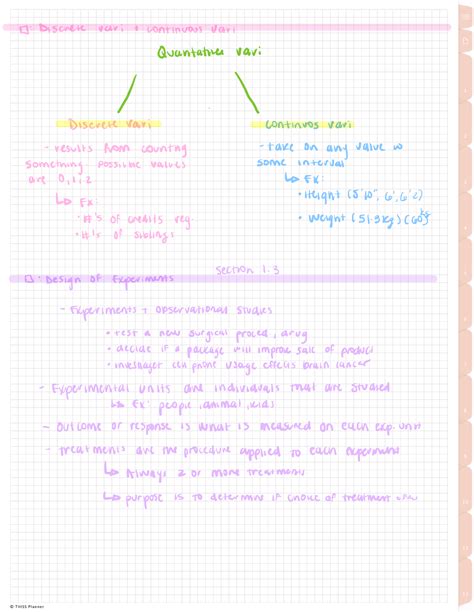 □: Discrete vari + continuous vari
Quantative vari
Discrete vari
- results from counting
something. possible values
are 0,1,2
↳ Ex:
- #'s of credits reg.
- #'s of siblings
continuos vari
- take on any value w
some interval
↳ Ex:
• Height (5'10", 6', 6'2)
• Weight (51.5kg) (60kg)
Section 1.3
□: Design of Experiments
- Experiments + observational studies
• test a new surgical proced, drug
• decide if a package will improve sale of product
• cell phone usage effects brain cancer
- Experimental units are individuals that are studied
↳ Ex: people, animal, kids
- Outcome or response is what is measured on each exp. unit
- treatments are the procedure applied to each experiment
↳ Always 2 or more treatments
↳ purpose is to determine if choice of treatment
© THSS Planner